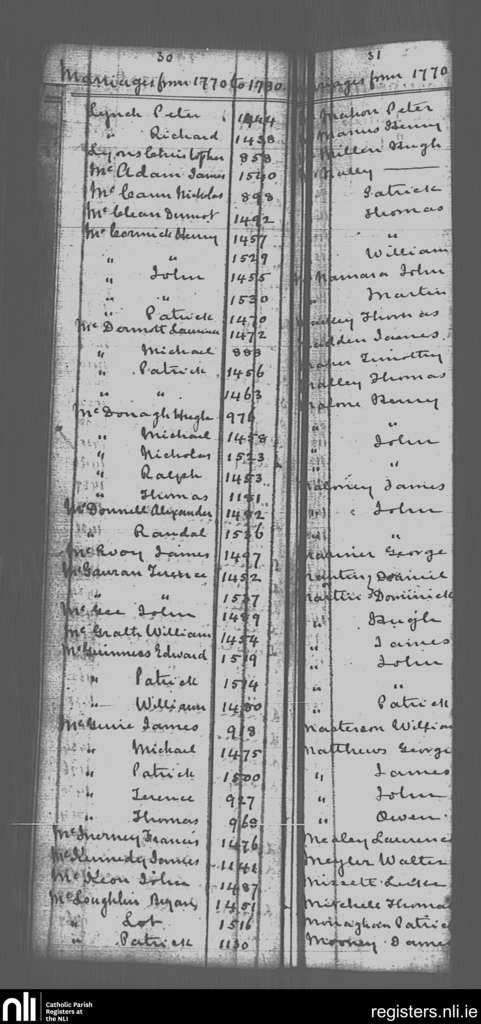 30
Marriages from 1770 to 1780
Lynch Peter 1444
" Richard 1438
Lyons Christopher 858
McAdam James 1540
McCann Nicholas 898
McClean Dermot 1492
McCormick Henry 1457
" " 1529
" John 1455
" " 1530
" Patrick 1470
McDermott Laurence 1472
" Michael 888
" Patrick 1456
" " 1463
McDonagh Hugh 976
" Michael 1458
" Nicholas 1523
" Ralph 1453
" Thomas 1181
McDonnell Alexander 1482
" Randal 1536
McEvoy James 1497
McGauran Terence 1452
" " 1537
McGee John 1489
McGrath William 1454
McGuinness Edward 1519
" Patrick 1514
" William 1480
McGuire James 918
" Michael 1475
" Patrick 1500
" Terence 927
" Thomas 968
McInerney Francis 1476
McKennedy James 1141
McKeon John 1487
McLoughlin Bryan 1451
" Lot 1516
" Patrick 1130
31
from 1770
Mahon Peter
Manus Henry
Millen Hugh
Malley
Patrick
Thomas
"
William
McNamara John
" Martin
Thomas
Madden James
Timothy
Malley Thomas
Malone Henry
"
" John
" "
Maloney James
" John
"
George
Daniel
Martin Dominick
" Hugh
" James
" John
" "
" Patrick
Masterson William
Matthews George
" James
" John
" Owen
Mealey Laurence
Meyler Walter
Missett
Mitchell Thomas
Monaghan Patrick
Mooney James
nli
Catholic Parish
Registers at
the NLI
registers.nli.ie